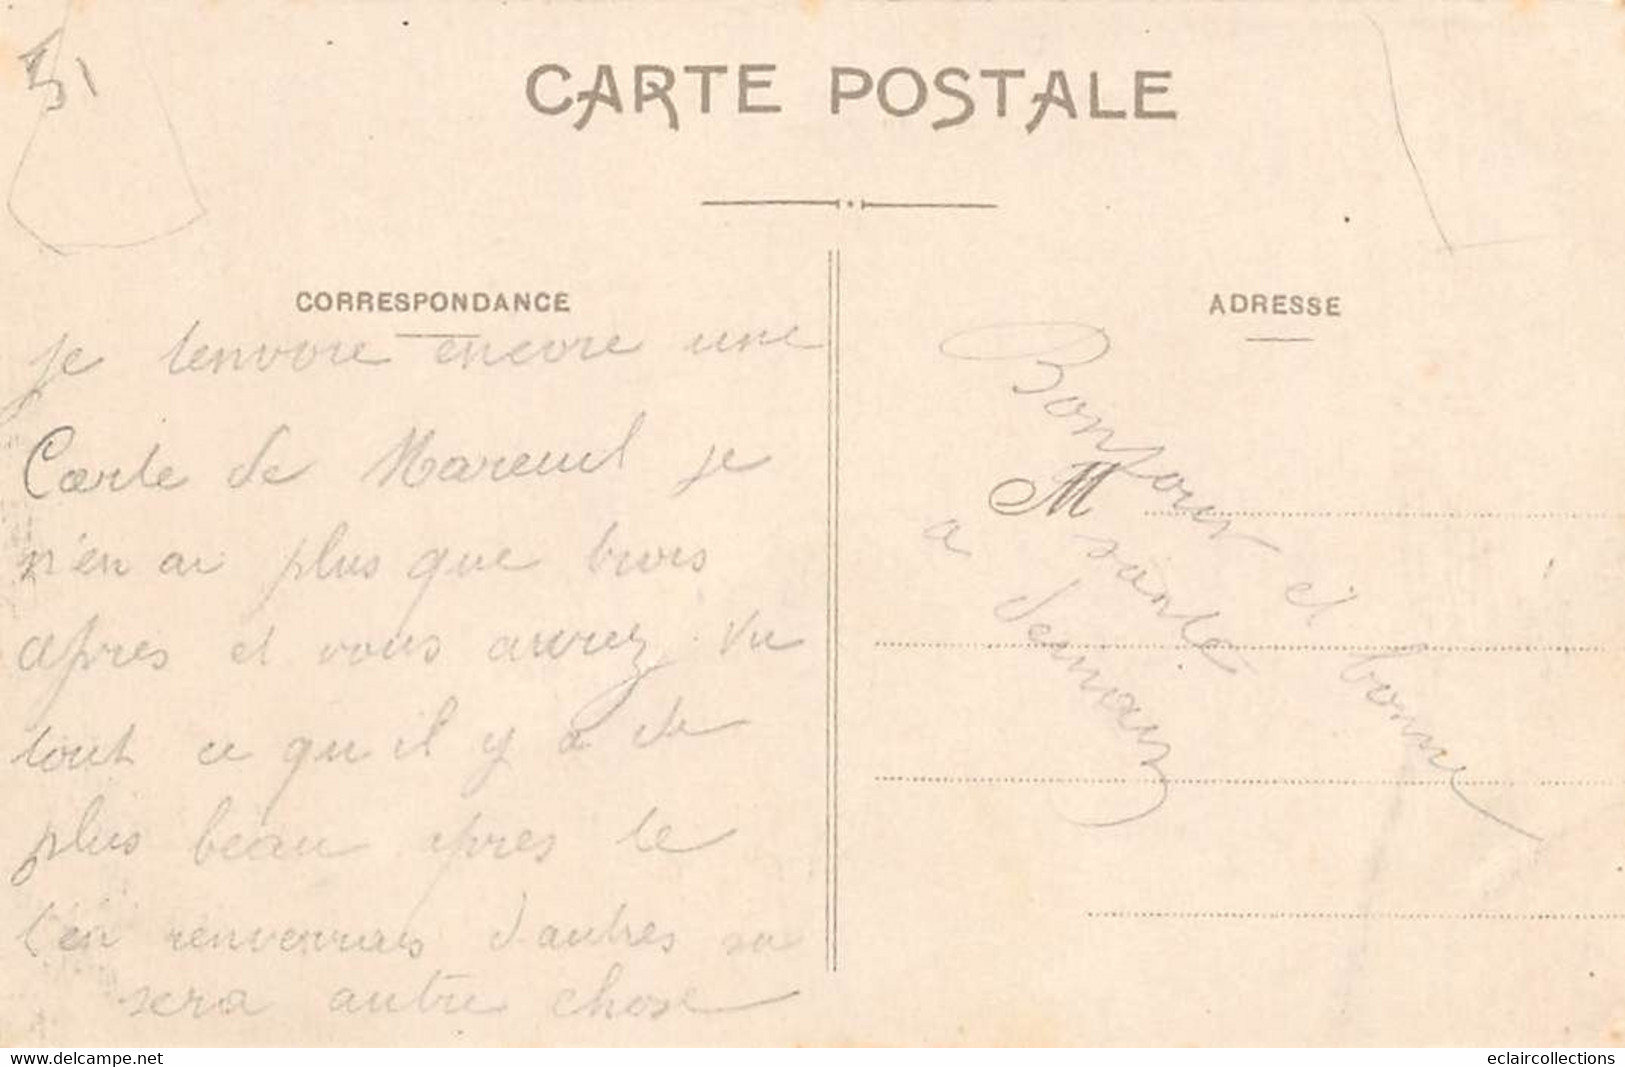 51
CARTE POSTALE
CORRESPONDANCE
je tenvoie encore une
Carte de Mareuil je
n'en ai plus que trois
apres et vous aurrez vu
tout ce qu il y a de
plus beau apres je
t'en renverrais d'autres sa
sera autre chose
ADRESSE
M
Bonjour et bonne
santé
a demain
www.delcampe.net
eclaircollections